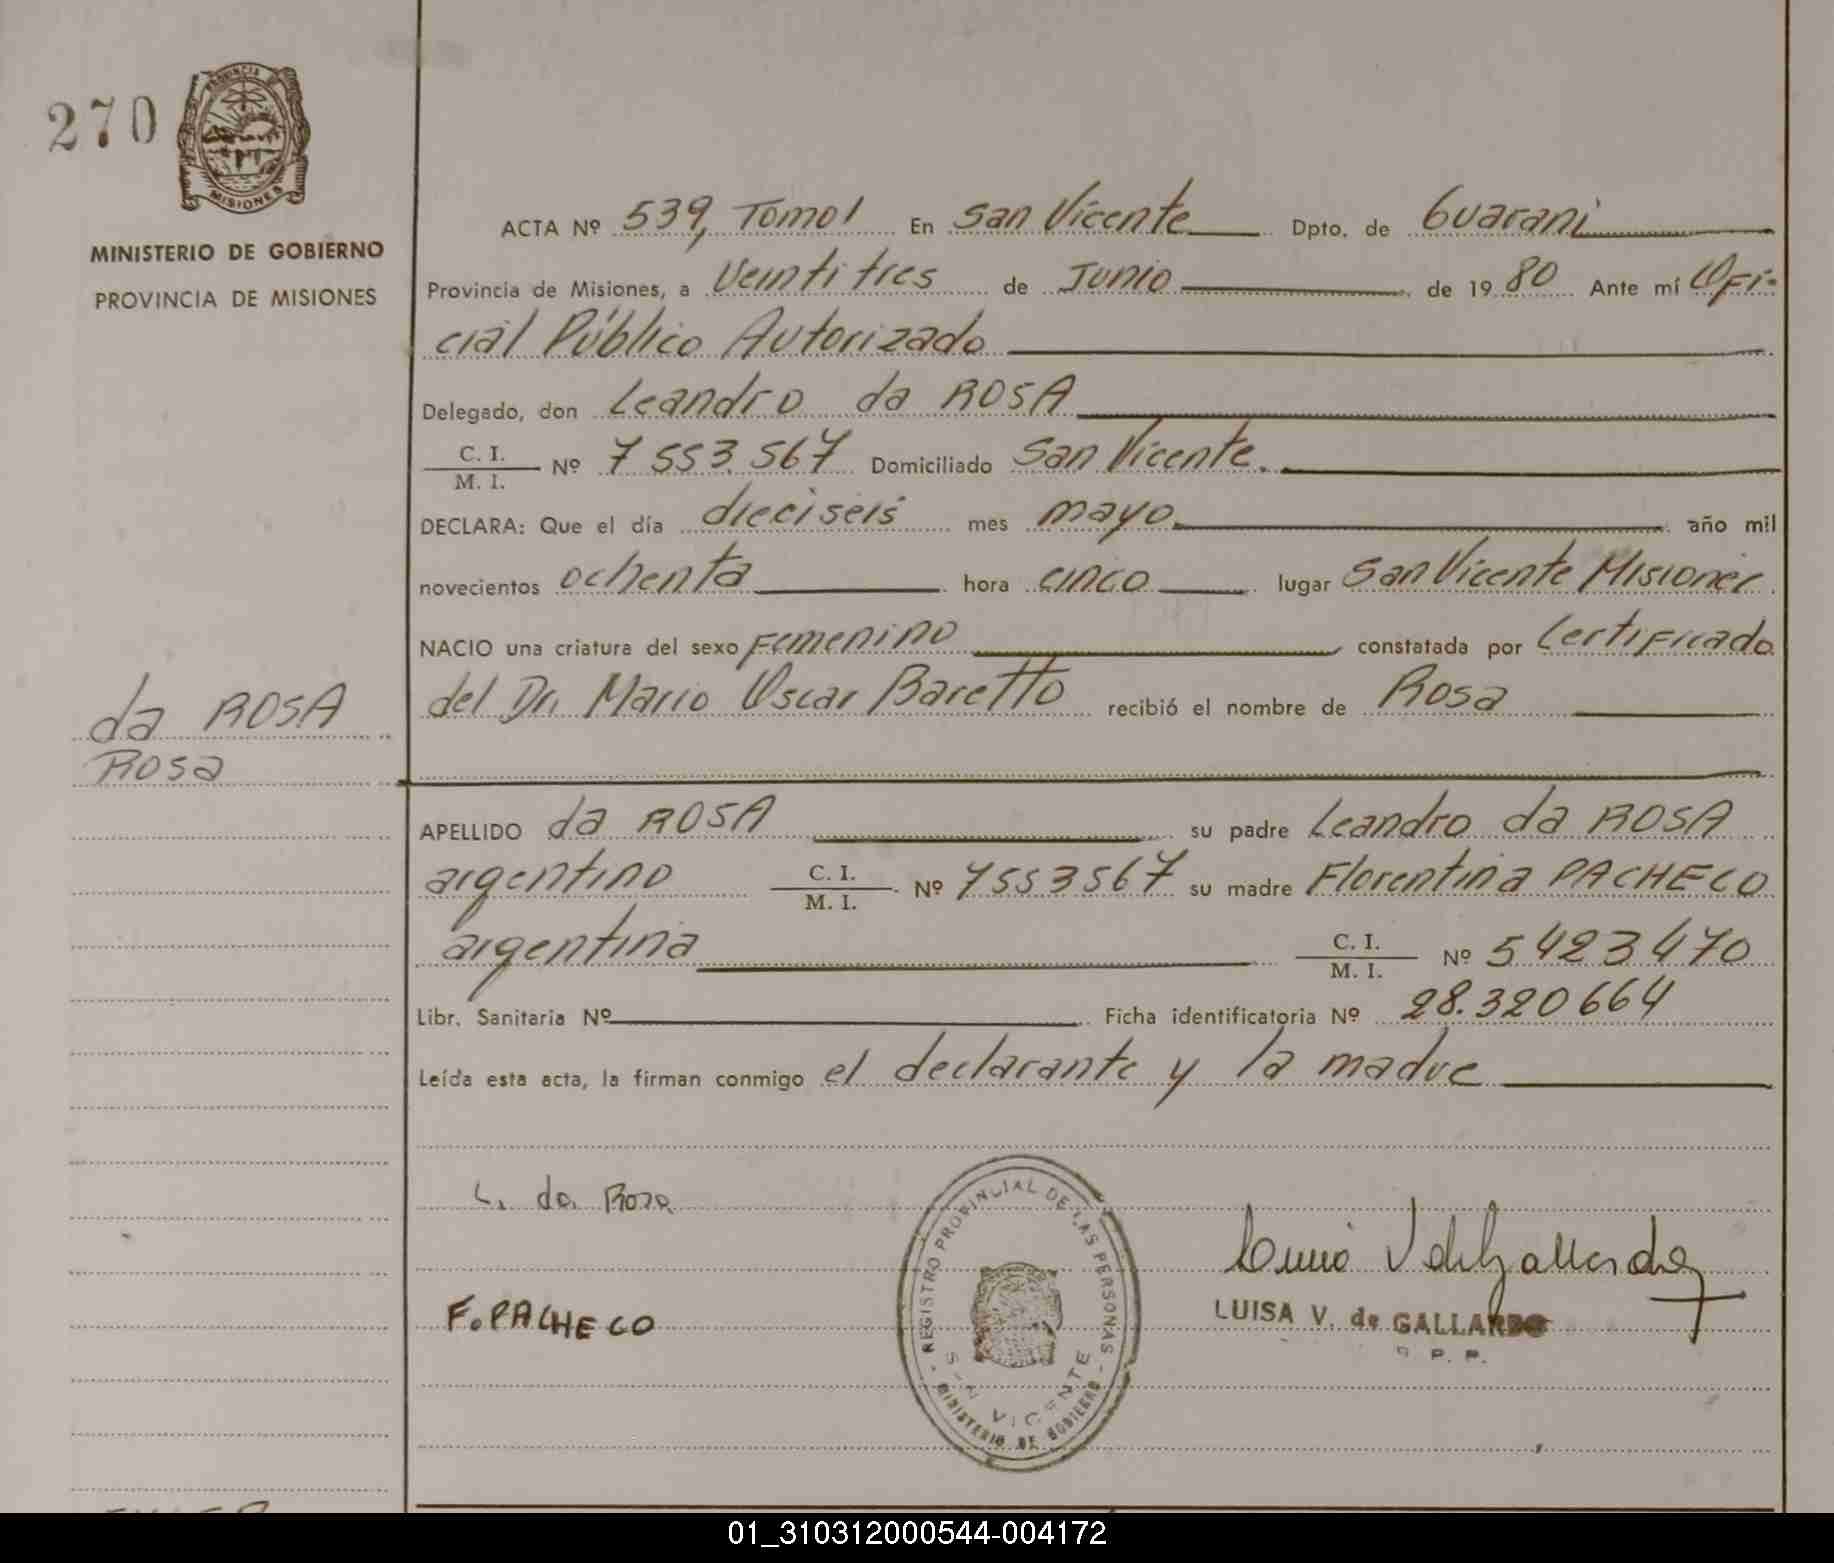 270
PROVINCIA DE
MISIONES
MINISTERIO DE GOBIERNO
PROVINCIA DE MISIONES
ACTA Nº 539, Tomo I En San Vicente Dpto. de Guarani
Provincia de Misiones, a Veintitres de Junio de 1980 Ante mí Ofi-
cial Público Autorizado
Delegado, don Leandro da ROSA
C. I.
M. I. Nº 7 553.567 Domiciliado San Vicente.
DECLARA: Que el día dieciseis mes mayo año mil
novecientos ochenta hora cinco lugar San Vicente Misiones
NACIO una criatura del sexo Femenino constatada por Certificado
del Dr. Mario Oscar Baretto recibió el nombre de Rosa
da ROSA
Rosa
APELLIDO da ROSA su padre Leandro da ROSA
argentino C. I.
M. I. Nº 7553567 su madre Florentina PACHECO
argentina C. I.
M. I. Nº 5423470
Libr. Sanitaria Nº Ficha identificatoria Nº 28.320664
Leída esta acta, la firman conmigo el declarante y la madre
L. da Rosa
F. PACHECO
REGISTRO PROVINCIAL DE LAS PERSONAS
SAN VICENTE
MINISTERIO DE GOBIERNO
LUISA V. de GALLARDO
01_310312000544-004172